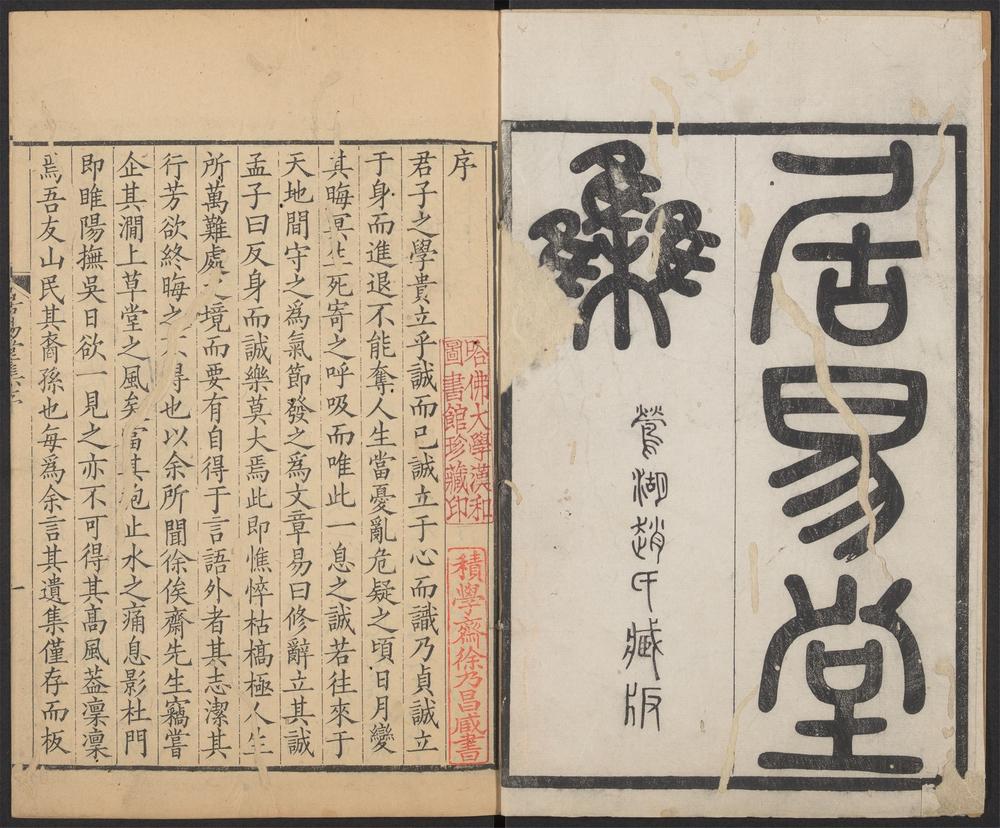 居易堂
集
鶯湖趙氏臧版
哈佛大學漢和
圖書館珍藏印
積學齋徐乃昌臧書
序
君子之學貴立乎誠而已誠立于心而識乃貞誠立
于身而進退不能奪人生當憂亂危疑之頃日月變
其晦冥生死寄之呼吸而唯此一息之誠若往來于
天地間守之爲氣節發之爲文章易曰修辭立其誠
孟子曰反身而誠樂莫大焉此即憔悴枯槁極人生
所萬難處之境而要有自得于言語外者其志潔其
行芳欲終晦之不得也以余所聞徐俟齋先生竊嘗
企其澗上草堂之風矣當其抱止水之痛息影杜門
即睢陽撫吳日欲一見之亦不可得其髙風葢凜凜
焉吾友山民其裔孫也每爲余言其遺集僅存而板
一